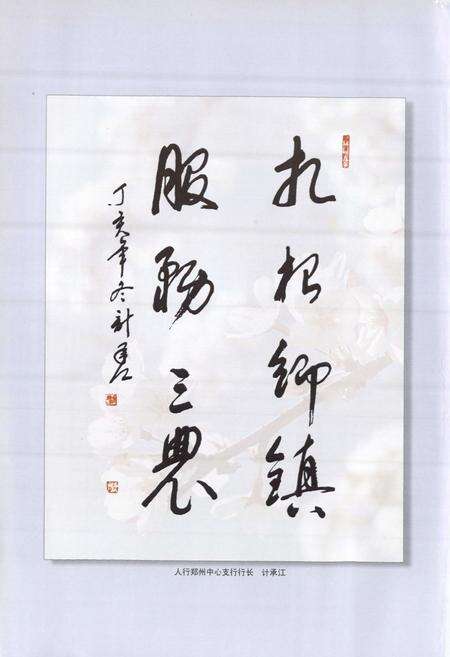 扎根鄉鎮
服務三農
丁亥年冬計承江
人行郑州中心支行行长 计承江